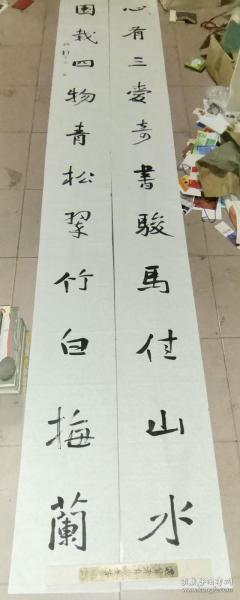 心有三愛奇書駿馬佳山水
園栽四物青松翠竹白梅蘭